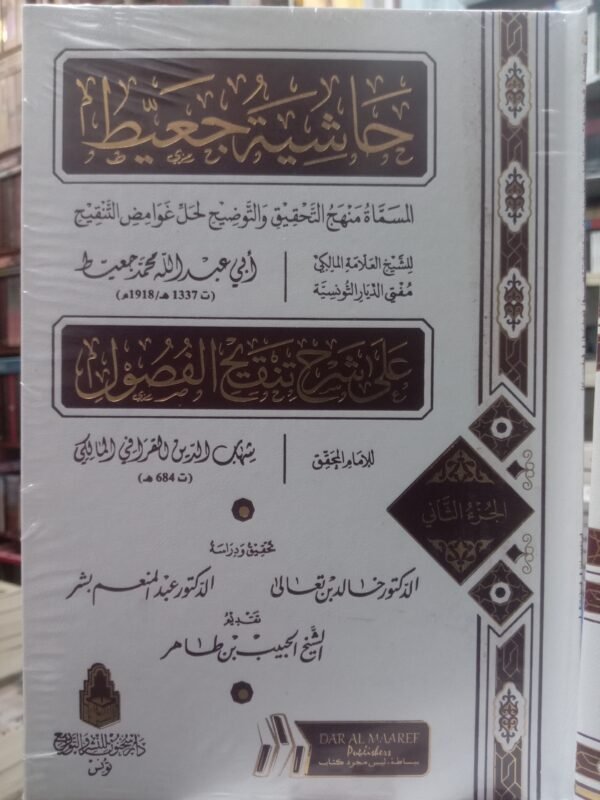 حاشية جعيط
المسماة منهج التحقيق والتوضيح لحل غوامض التنقيح
للشيخ العلامة المالكي
مفتي الديار التونسية
أبي عبد الله محمد جعيط
(ت 1337 هـ/1918م)
على شرح تنقيح الفصول
للإمام المحقق
شهاب الدين القرافي المالكي
(ت 684 هـ)
الجزء الثاني
تحقيق ودراسة
الدكتور خالد بن تعالى
الدكتور عبد المنعم بشر
تقديم
الشيخ الحبيب بن طاهر
دار سحنون للنشر والتوزيع
تونس
DAR AL MAAREF
Publishers
ببساطة، ليس مجرد كتاب